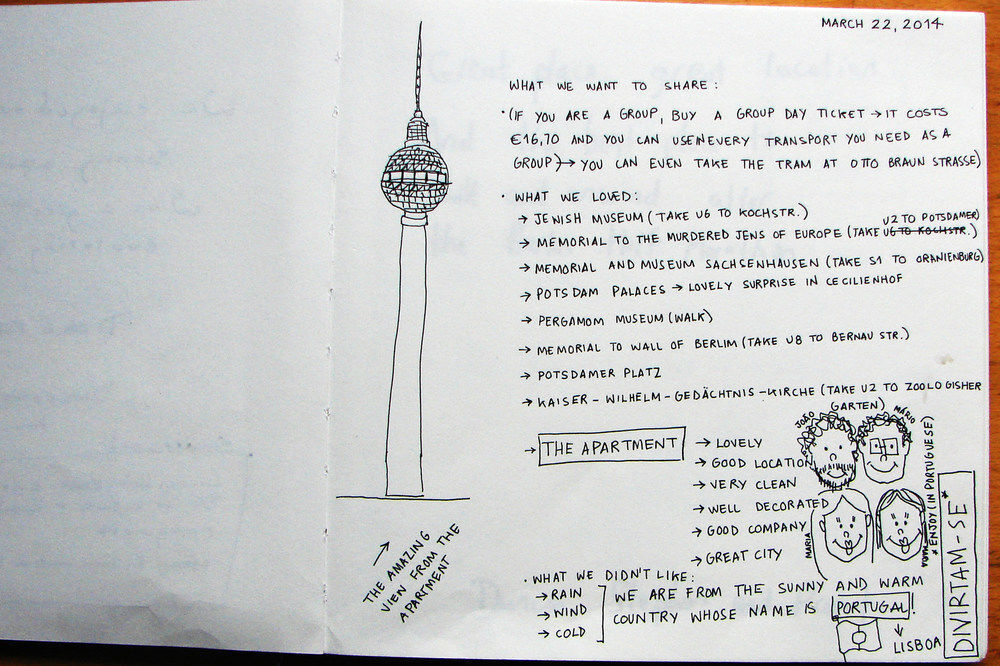 MARCH 22, 2014
WHAT WE WANT TO SHARE:
• (IF YOU ARE A GROUP, BUY A GROUP DAY TICKET → IT COSTS
€16,70 AND YOU CAN USE IN EVERY TRANSPORT YOU NEED AS A
GROUP) → YOU CAN EVEN TAKE THE TRAM AT OTTO BRAUN STRASSE)
• WHAT WE LOVED:
→ JEWISH MUSEUM (TAKE U6 TO KOCHSTR.)
U2 TO POTSDAMER)
→ MEMORIAL TO THE MURDERED JENS OF EUROPE (TAKE U6 TO KOCHSTR.)
→ MEMORIAL AND MUSEUM SACHSENHAUSEN (TAKE S1 TO ORANIENBURG)
→ POTSDAM PALACES → LOVELY SURPRISE IN CECILIENHOF
→ PERGAMOM MUSEUM (WALK)
→ MEMORIAL TO WALL OF BERLIM (TAKE U8 TO BERNAU STR.)
→ POTSDAMER PLATZ
→ KAISER-WILHELM-GEDÄCHTNIS-KIRCHE (TAKE U2 TO ZOOLOGISHER
GARTEN)
→ THE APARTMENT → LOVELY
→ GOOD LOCATION
→ VERY CLEAN
→ WELL DECORATED
→ GOOD COMPANY
→ GREAT CITY
JOÃO
MÁRIO
MARIA
• WHAT WE DIDN'T LIKE:
→ RAIN
→ WIND
→ COLD
WE ARE FROM THE SUNNY AND WARM
COUNTRY WHOSE NAME IS PORTUGAL!
↓
LISBOA
DIVIRTAM-SE*
*ENJOY (IN PORTUGUESE)
→
THE AMAZING
VIEW FROM THE
APARTMENT